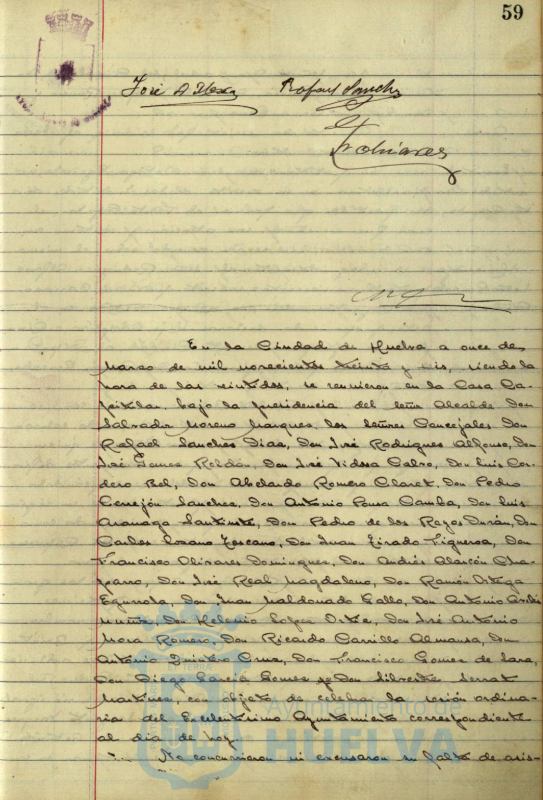 59
Rafael Sanchez
Olivares
En la Ciudad de Huelva a once de
Marzo de mil novecientos treinta y seis, siendo la
hora de las veintidos, se reunieron en la Casa Ca-
pitular, bajo la presidencia del Señor Alcalde Don
Salvador Moreno Marquez, los señores Concejales Don
Rafael Sanchez Diaz, Don José Rodriguez Alfonso, Don
José Gomez Roldán, Don José Vidosa Calvo, Don Luis Cor-
dero Bel, Don Abelardo Romero Claret, Don Pedro
Cerrejón Sanchez, Don Antonio Pousa Camba, Don Luis
Don Pedro de los Reyes Durán, Don
Carlos Lozano Don Juan Tirado Figueroa, Don
Francisco Olivares Dominguez, Don Andrés Alarcón Cha-
parro, Don José Real Magdaleno, Don Ramón Ortega
Don Juan Maldonado Gallo, Don Antonio
Muñiz, Don Helenio Lopez Ortiz, Don José Antonio
Mora Romero, Don Ricardo Carrillo Almansa, Don
Antonio Quintero Cruz, Don Francisco Gomez de Lara,
Don Diego Garcia Gomez y Don Silvestre Serrat
Martinez, con objeto de celebrar la sesión ordina-
ria del Excelentisimo Ayuntamiento correspondiente
al dia de hoy.
No concurrieron ni excusaron su falta de asis-
Ayuntamiento de
HUELVA